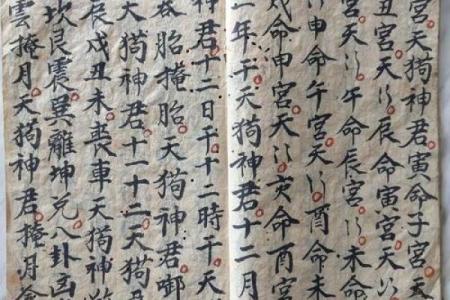 宮。天狗神君。寅命子宮。天
丑宮天〻。辰命寅宮天〻
宮天〻。午命辰宮〻。未命
〻申命午宮天〻。酉命未
戌命申宮天〻。亥命酉宮
年干天狗神君。十二月
神君。十二日干。十二時干。天
胎掩胎。天狗神君。啣
天狗神君。十一十二。天狗
辰戌丑未。喪車天狗神
坎艮震巽離坤兌。八卦凶
雲掩月。天狗神君。掩月